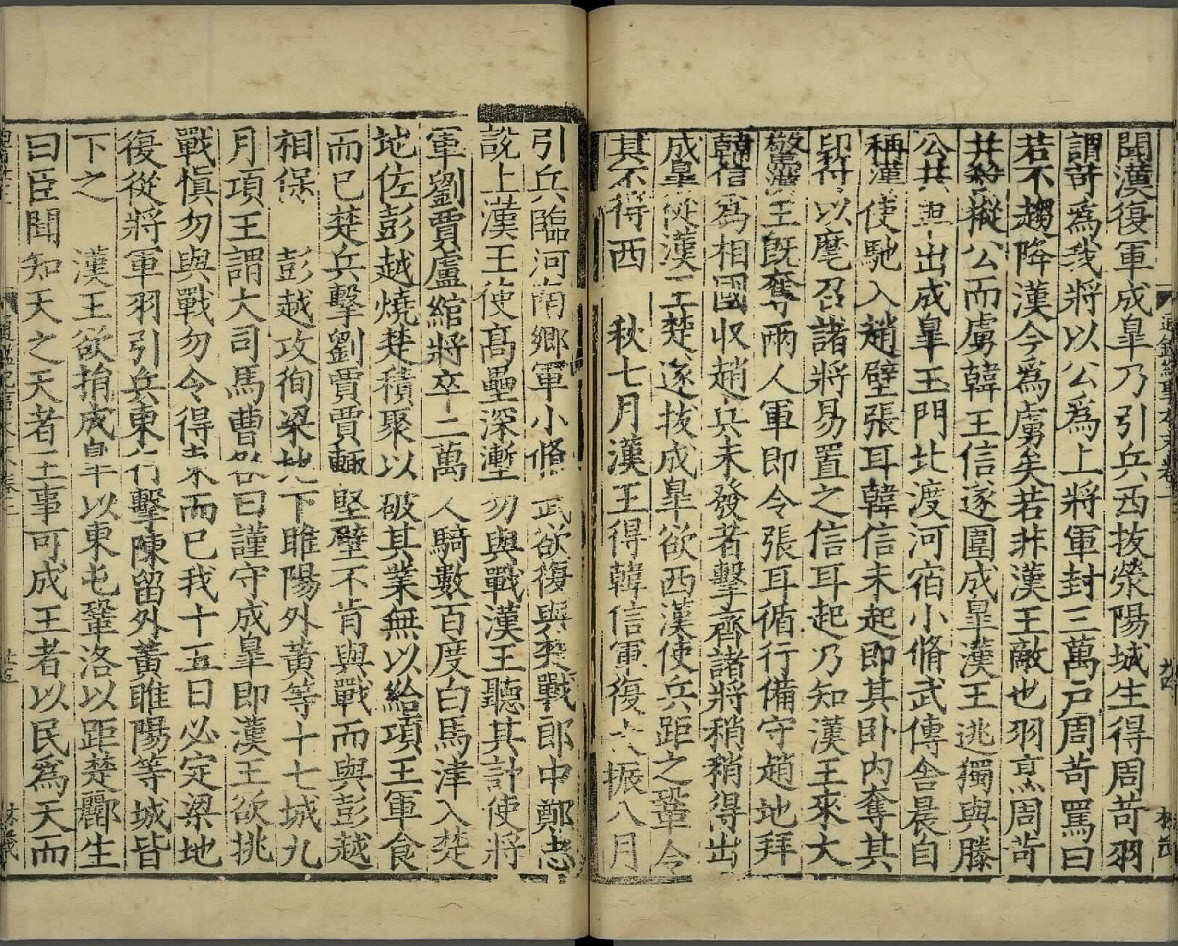 聞漢復軍成皋乃引兵西拔滎陽城生得周苛羽
謂苛為我將以公為上將軍封三萬戶周苛罵曰
若不趨降漢今為虜矣若非漢王敵也羽烹周苛
并殺樅公而虜韓王信遂圍成皋漢王逃獨與滕
公共車出成皋玉門北渡河宿小脩武傳舍晨自
稱漢使馳入趙壁張耳韓信未起即其卧內奪其
印符以麾召諸將易置之信耳起乃知漢王來大
驚漢王既奪兩人軍即令張耳循行備守趙地拜
韓信為相國収趙兵未發者擊齊諸將稍稍得出
成皋從漢王楚遂拔成皋欲西漢使兵距之鞏令
其不得西 秋七月漢王得韓信軍復大振八月
引兵臨河南鄉軍小脩武欲復與楚戰郎中鄭忠
說上漢王使高壘深塹勿與戰漢王聽其計使將
軍劉賈盧綰將卒二萬人騎數百度白馬津入楚
地佐彭越燒楚積聚以破其業無以給項王軍食
而已楚兵擊劉賈賈輒堅壁不肯與戰而與彭越
相保 彭越攻徇梁地下睢陽外黃等十七城九
月項王謂大司馬曹咎曰謹守成皋即漢王欲挑
戰慎勿與戰勿令得東而已我十五日必定梁地
復從將軍羽引兵東行擊陳留外黃睢陽等城皆
下之 漢王欲捐成皋以東屯鞏洛以距楚酈生
曰臣聞知天之天者王事可成王者以民為天而